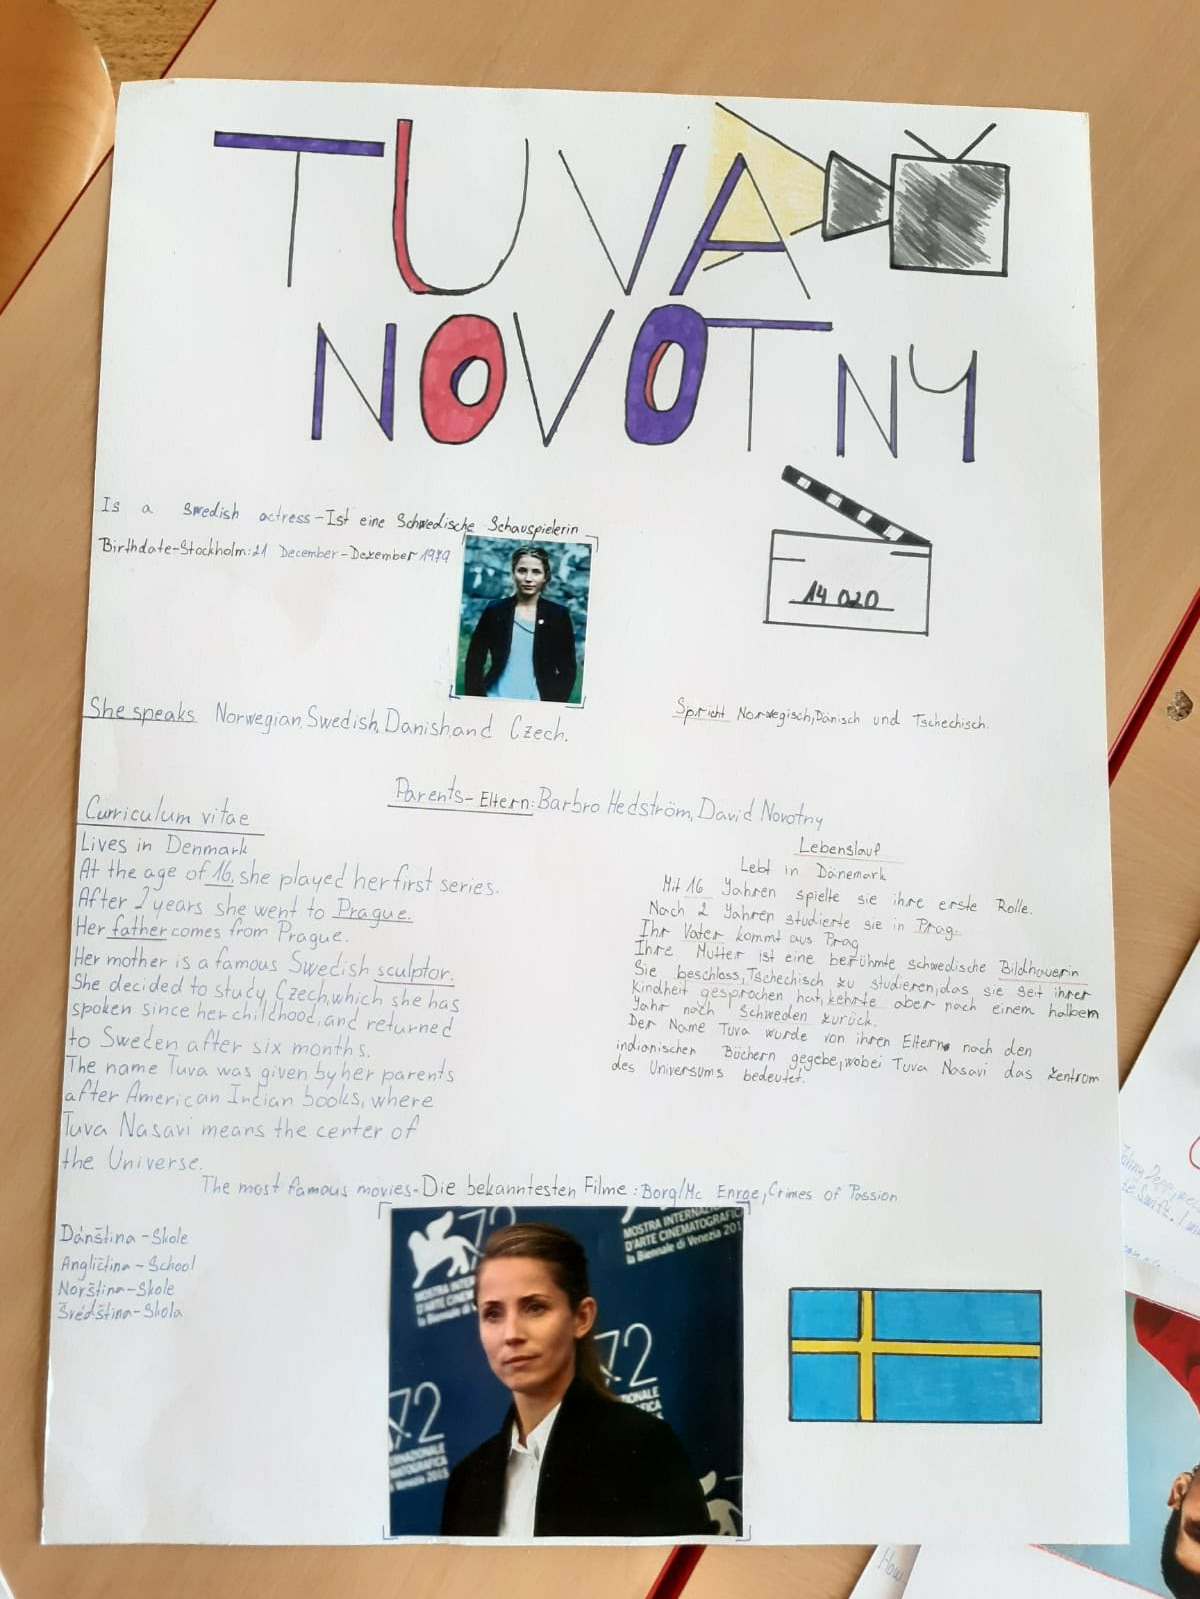 TUVA
NOVOTNY
Is a Swedish actress-Ist eine Schwedische Schauspielerin
Birthdate-Stockholm:21 December-Dezember 1979
14 020
She speaks Norwegian, Swedish, Danish, and Czech.
Spricht Norwegisch, Dänisch und Tschechisch.
Parents-Eltern: Barbro Hedström, David Novotny
Curriculum vitae
Lives in Denmark
At the age of 16, she played her first series.
After 2 years she went to Prague.
Her father comes from Prague.
Her mother is a famous Swedish sculptor.
She decided to study Czech, which she has
spoken since her childhood, and returned
to Sweden after six months.
The name Tuva was given by her parents
after American Indian books, where
Tuva Nasavi means the center of
the Universe.
Lebenslauf
Lebt in Dänemark
Mit 16 Jahren spielte sie ihre erste Rolle.
Nach 2 Jahren studierte sie in Prag.
Ihr Vater kommt aus Prag
Ihre Mutter ist eine berühmte schwedische Bildhauerin
Sie beschloss, Tschechisch zu studieren, das sie seit ihrer
Kindheit gesprochen hat, kehrte aber nach einem halbem
Jahr nach Schweden zurück.
Der Name Tuva wurde von ihren Eltern nach den
indianischen Büchern gegebe, wobei Tuva Nasavi das Zentrom
des Universums bedeutet.
The most famous movies-Die bekanntesten Filme: Borg/Mc Enroe, Crimes of Passion
Dánština-Skole
Angličtina-School
Norština-Skole
Švédština-Skola
72
MOSTRA INTERNAZIO
D'ARTE CINEMATOGRAFICA
la Biennale di Venezia 201
72
72
la Biennale di Venezia 2015
How